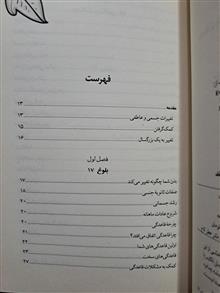 فهرست
مقدمه ۱۳
تغییرات جسمی و عاطفی ۱۳
کمک گرفتن ۱۵
تغییر به یک بزرگسال ۱۶
فصل اول
بلوغ ۱۷
بدن شما چگونه تغییر می‌کند ۱۷
صفات ثانویهٔ جنسی
رشد جسمانی
شروع عادات ماهانه
چرخهٔ قاعدگی
چرا قاعدگی اتفاق می‌افتد؟
اولین قاعدگی‌های شما
قاعدگی‌های سخت
کمک به مشکلات قاعدگی ۲۷